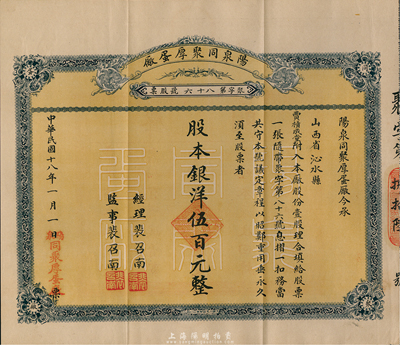 陽泉同聚厚蛋廠
聚字第八十六號股票
陽泉同聚厚蛋廠今承
山西省沁水縣
附入本廠股份壹股理合填給股票
一張隨帶聚字第八十六號息摺一扣務當
共守本號議定章程以昭鄭重用垂永久
須至股票者
股本銀洋伍百元整
經理裴召南
監事裴召南
中華民國十八年一月一日同聚厚蛋廠票
聚字第
捌拾陸
號
上海陽明拍賣